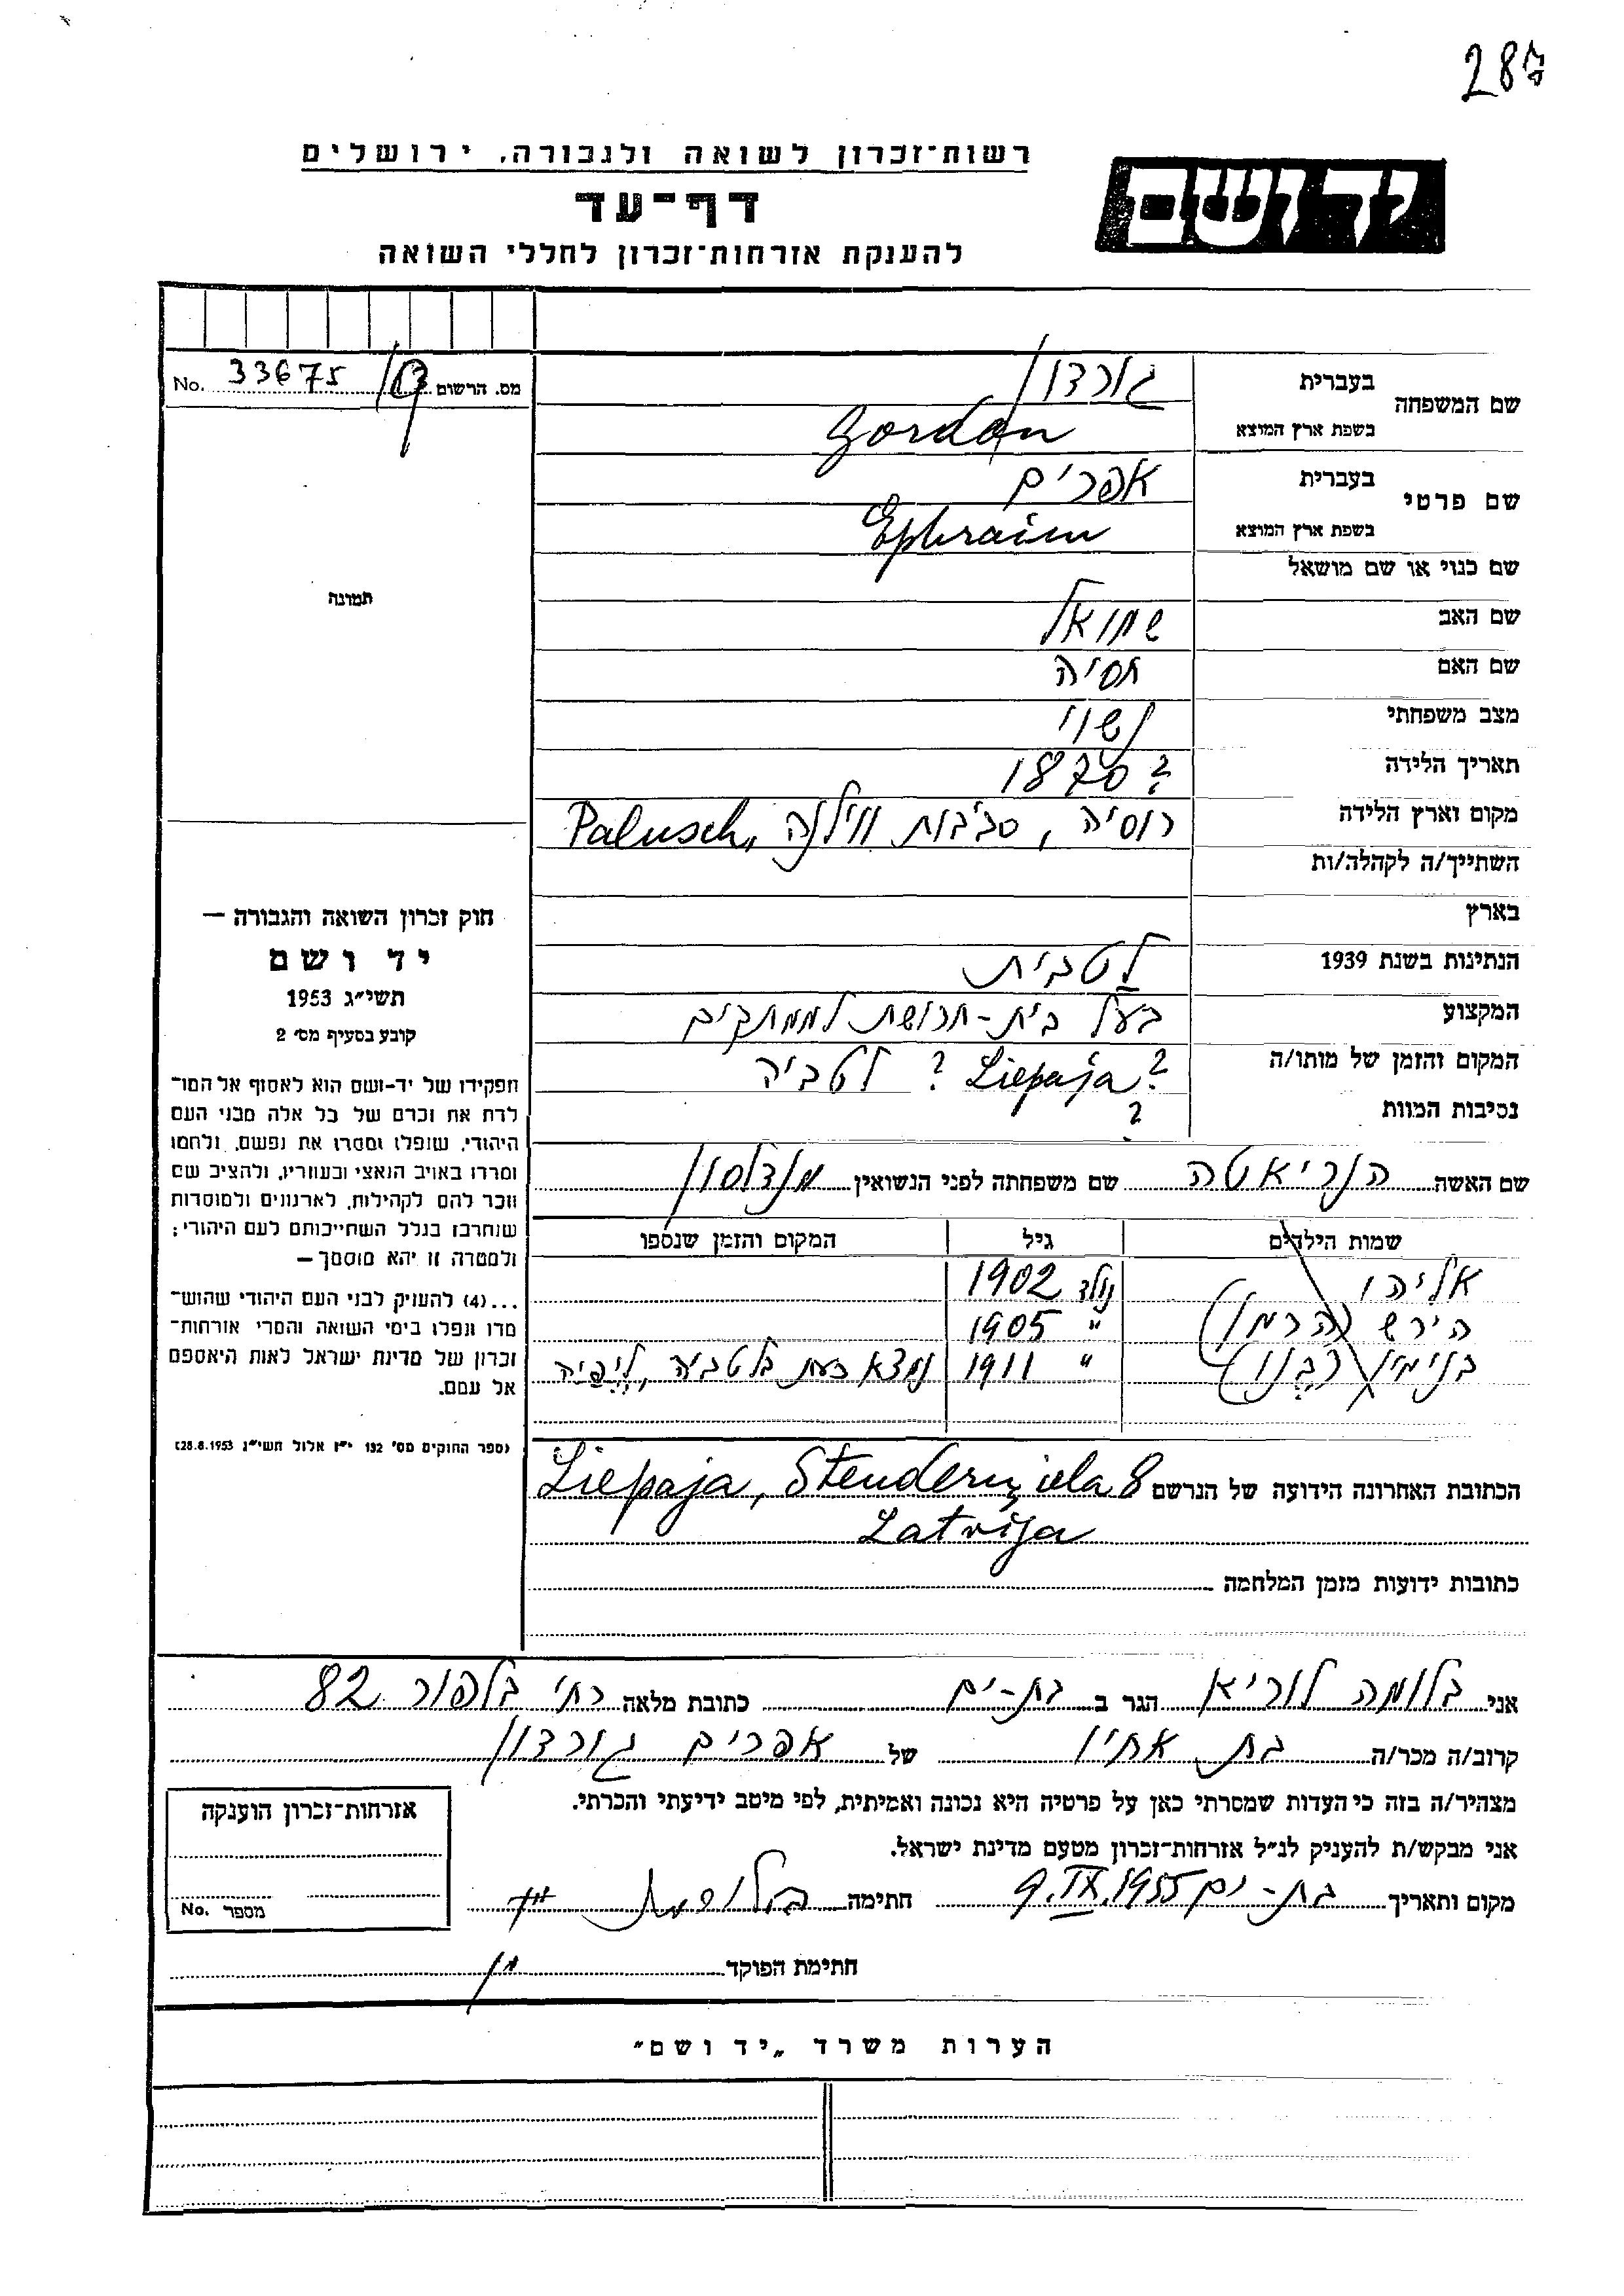 287
רשות־זכרון לשואה ולגבורה, ירושלים
יד ושם
דף־עד
להענקת אזרחות־זכרון לחללי השואה
מס. הרשום 33675 No.
שם המשפחה
בעברית גורדון
בשפת ארץ המוצא Gordon
שם פרטי
בעברית אפרים
בשפת ארץ המוצא Ephraim
שם כנוי או שם מושאל
שם האב שמואל
שם האם חסיה
מצב משפחתי נשוי
תאריך הלידה 1870 ?
מקום וארץ הלידה רוסיה, סביבות ווילנה, Palusch
השתייך/ה לקהלה/ות
בארץ
הנתינות בשנת 1939 לטבית
המקצוע בעל בית-חרושת לממתקים
המקום והזמן של מותו/ה ? Liepaja ? לטביה
נסיבות המוות ?
תמונה
חוק זכרון השואה והגבורה —
יד ושם
תשי״ג 1953
קובע בסעיף מס׳ 2
תפקידו של יד-ושם הוא לאסוף אל המו־
לדת את זכרם של כל אלה מבני העם
היהודי, שנפלו ומסרו את נפשם, נלחמו
ומרדו באויב הנאצי ובעוזריו, ולהציב שם
וזכר להם לקהילות, לארגונים ולמוסדות
שנחרבו בגלל השתייכותם לעם היהודי;
ולמטרה זו יהא מוסמך —
...(4) להעניק לבני העם היהודי שהוש־
מדו ונפלו בימי השואה והמרי אזרחות־
זכרון של מדינת ישראל לאות היאספם
אל עמם.
(ספר החוקים מס׳ 132 י״ז אלול תשי״ג 28.8.1953)
שם האשה הנריאטה שם משפחתה לפני הנשואין מנדלסון
שמות הילדים גיל המקום והזמן שנספו
אליהו נולד 1902
הירש (הרמן) " 1905
בנימין (בנו) " 1911 נמצא כעת בלטביה, ליפיה
הכתובת האחרונה הידועה של הנרשם Liepaja, Stenderu iela 8
Latvija
כתובות ידועות מזמן המלחמה
אני בלומה לוריא הגר ב בת-ים כתובת מלאה רח׳ בלפור 82
קרוב/ה מכר/ה בת אחיו של אפרים גורדון
מצהיר/ה בזה כי העדות שמסרתי כאן על פרטיה היא נכונה ואמיתית, לפי מיטב ידיעתי והכרתי.
אני מבקש/ת להעניק לנ״ל אזרחות־זכרון מטעם מדינת ישראל.
מקום ותאריך בת-ים 9.IX.1955 חתימה
חתימת הפוקד
אזרחות־זכרון הוענקה
מספר No.
הערות משרד „יד ושם״